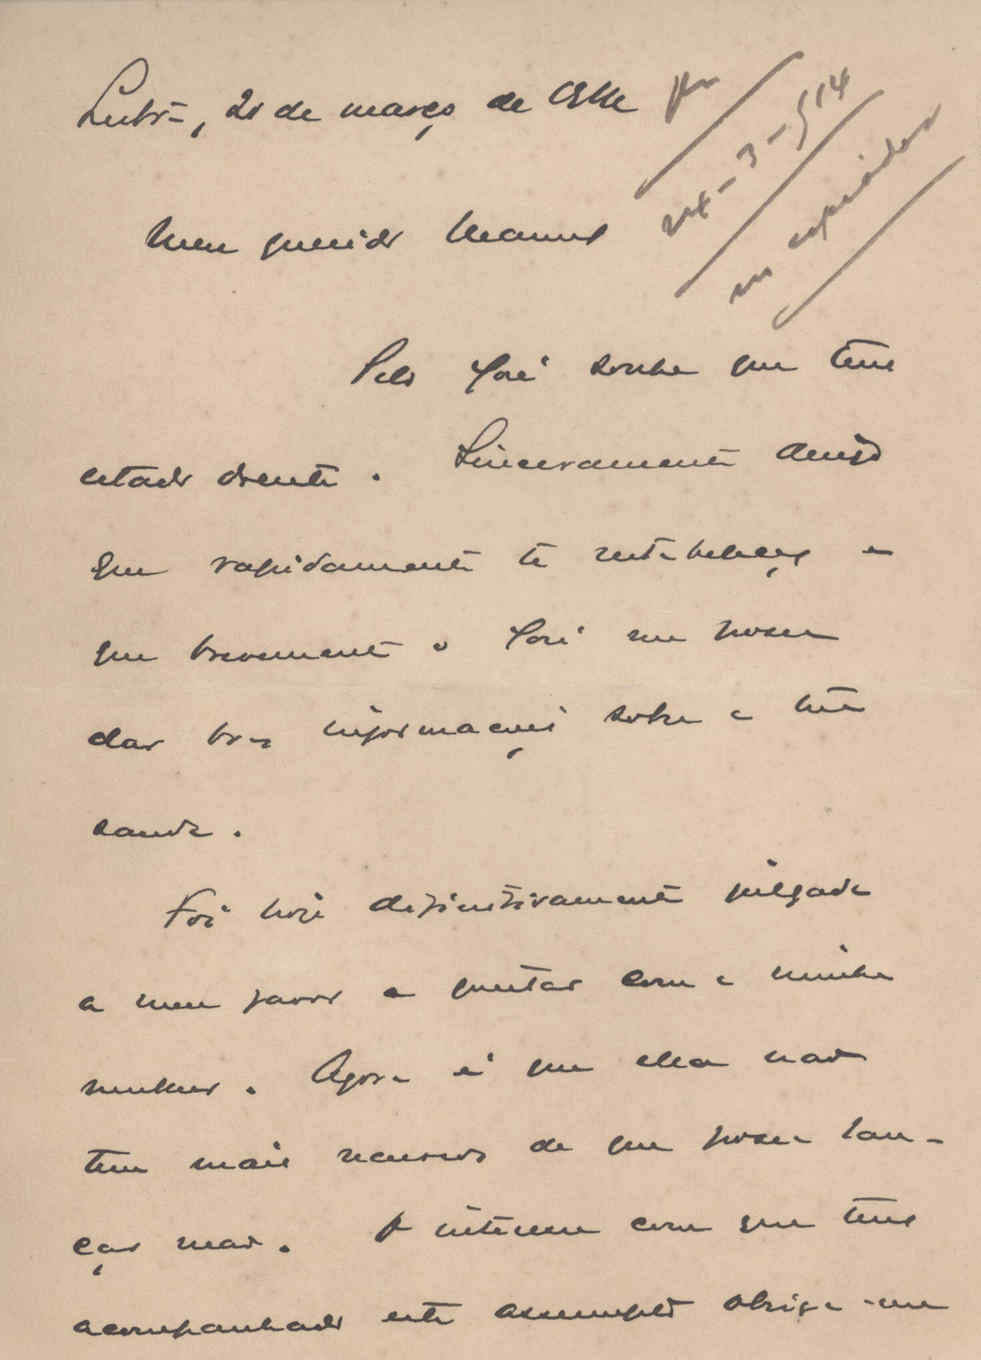 Lisbôa, 21 de março de 1914
24-3-914
Meu querido Manuel
Pelo José soube que tens
estado doente. Sinceramente desejo
que rapidamente te restabeleças e
que brevemente o José me possa
dar boas informações sobre a tua
saude.
Foi hoje definitivamente julgada
a meu favor a questão com a minha
mulher. Agora é que ella não
tem mais recursos de que possa lan-
çar mão. O interesse com que tens
acompanhado este assumpto obriga-me